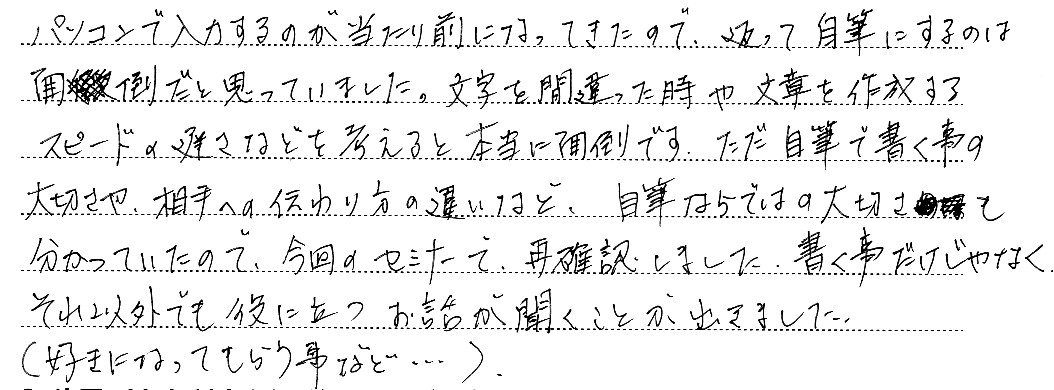 パソコンで入力するのが当たり前になってきたので、返って自筆にするのは
面倒だと思っていました。文字を間違った時や文章を作成する
スピードの遅さなどを考えると本当に面倒です。ただ自筆で書く事の
大切さや、相手への伝わり方の違いなど、自筆ならではの大切さも
分かっていたので、今回のセミナーで、再確認しました。書く事だけじゃなく、
それ以外でも役に立つお話が聞くことが出きました。
(好きになってもらう事など…)。